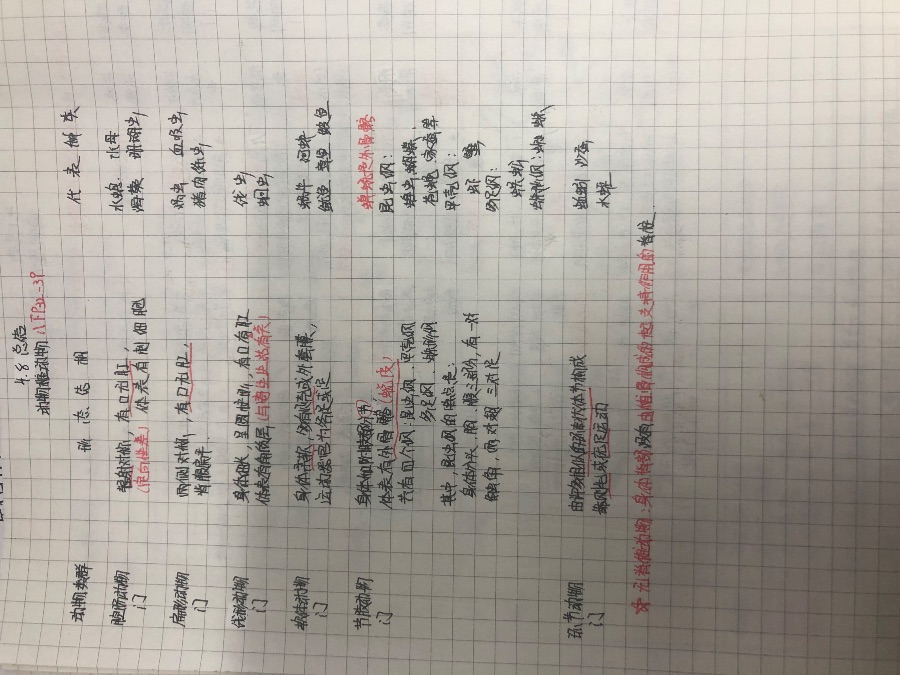 4.8 总结
动物门 P32-39
动物类群 形态结构 代表例类
腔肠动物门
辐射对称,有口无肛,
体表有刺细胞
水螅 水母
海葵 珊瑚虫
扁形动物门
两侧对称,有口无肛,
背腹扁平
涡虫 血吸虫
猪肉绦虫
线形动物门
身体细长,呈圆柱形,有口有肛
体表有角质层(与寄生生活有关)
线虫
蛔虫
软体动物门
身体柔软,有贝壳或外套膜,
运动器官为斧足或足
蜗牛 河蚌
鱿鱼 章鱼 鲍鱼
节肢动物门
体表有外骨骼(蜕皮)
共有四个纲:昆虫纲、甲壳纲
多足纲、蛛形纲
其中,昆虫纲的特点是:
身体分头、胸、腹三部分,有一对
触角,两对翅,三对足
昆虫纲:
蝗虫 蝴蝶、
苍蝇、家蚕等
甲壳纲:
虾 蟹
多足纲:
蜈蚣
蛛形纲:蜘蛛
环节动物门
由许多相似的环状体节构成
靠刚毛或疣足运动
蚯蚓 沙蚕
水蛭
☆ 无脊椎动物:身体背部没有由脊椎骨构成的起支持作用的脊柱